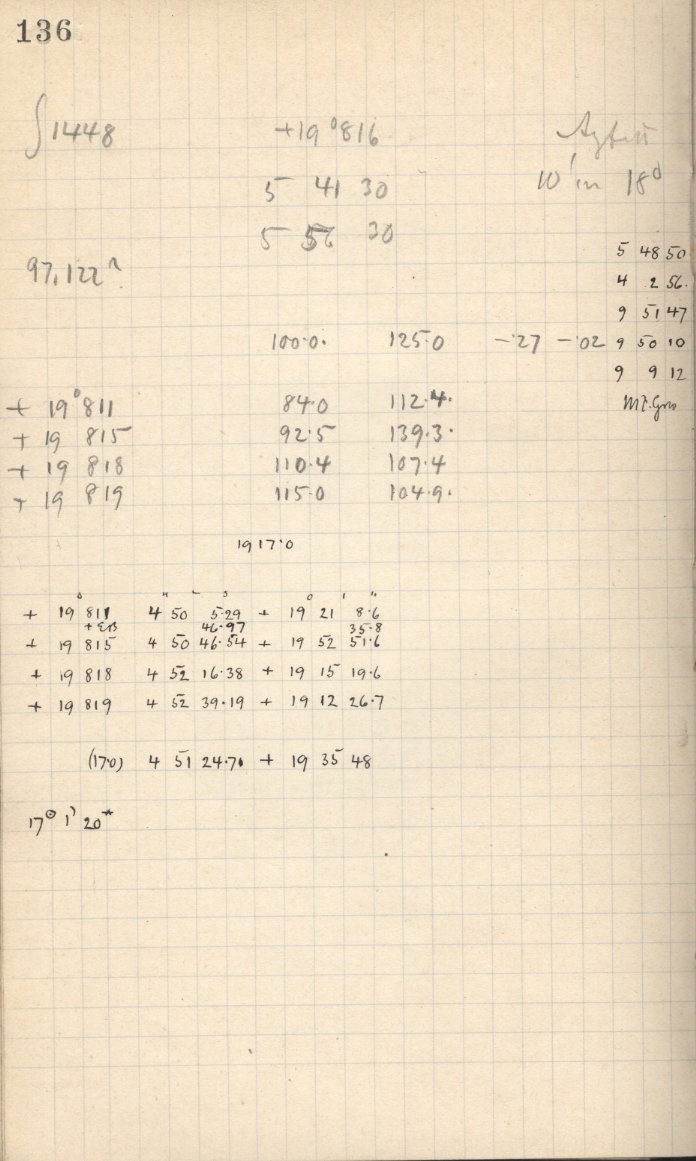 136
∫1448 +19°816
5 41 30 10' in 18d
5 56 30
97,122
5 48 50
4 2 56.
9 51 47
100.0. 125.0 -.27 -.02 9 50 10
9 9 12
+ 19°811 84.0 112.4.
+ 19 815 92.5 139.3.
+ 19 818 110.4 107.4
+ 19 819 115.0 104.9.
1917.0
+ 19°811 4 50 5.29 + 19° 21' 8.6"
46.97 35.8
+ 19 815 4 50 46.54 + 19 52 51.6
+ 19 818 4 52 16.38 + 19 15 19.6
+ 19 819 4 52 39.19 + 19 12 26.7
(17.0) 4 51 24.71 + 19 35 48
17° 1' 20*